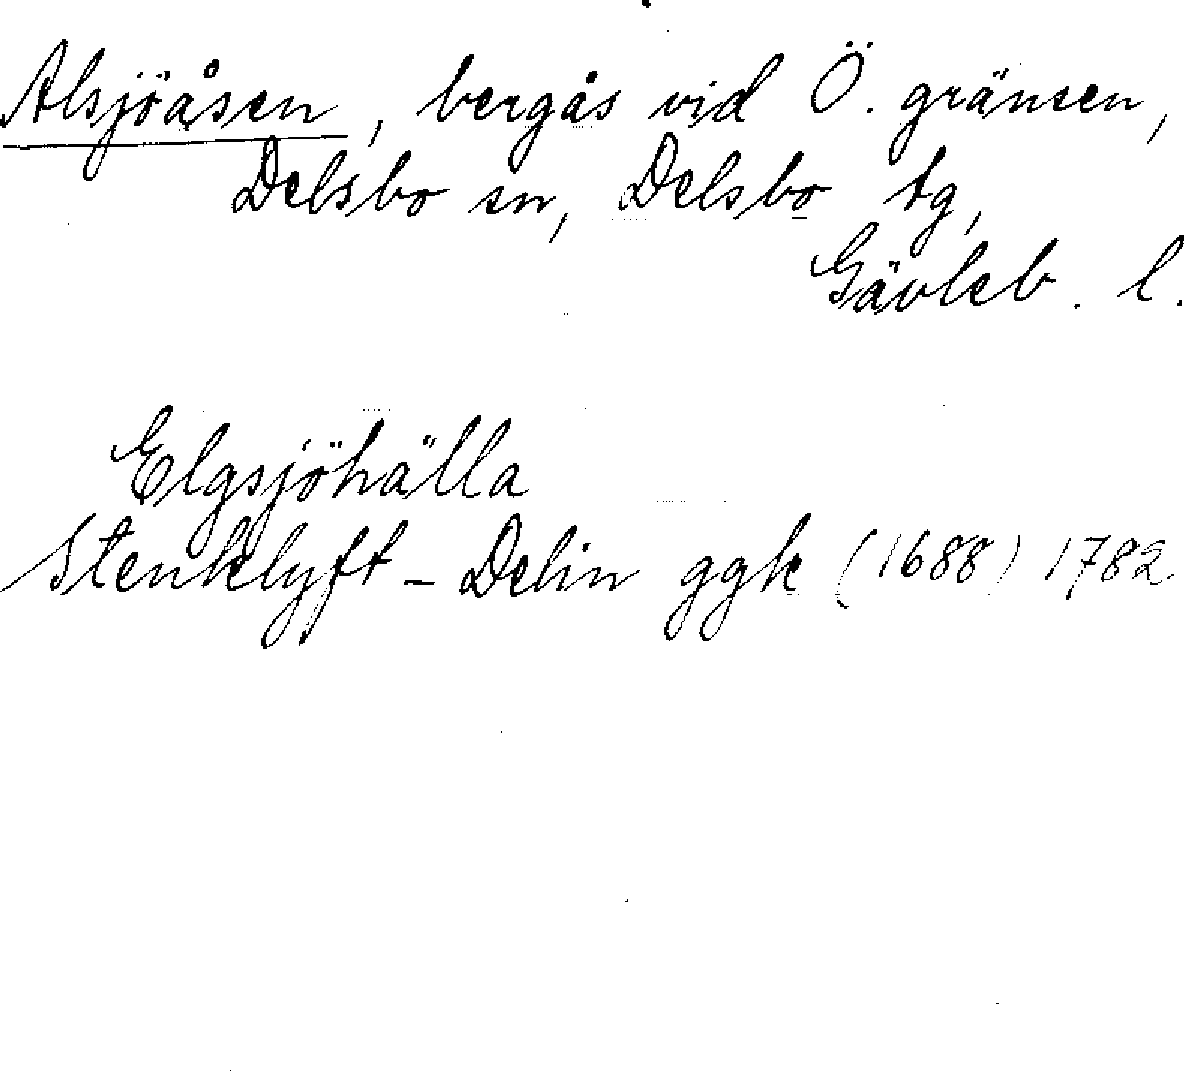 Alsjöåsen, bergås vid Ö. gränsen,
Delsbo sn, Delsbo tg,
Gävleb. l.
Elgsjöhälla
Stenklyft - Delin ggk (1688) 1782